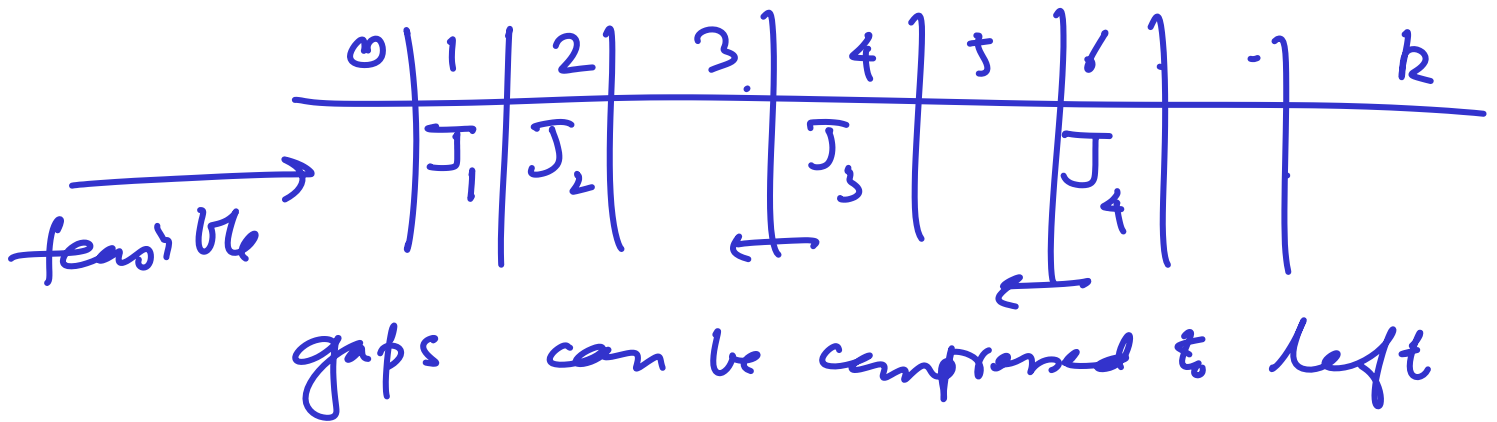 0 1 2 3 4 5 6 . . k
J1 J2 J3 J4
feasible
gaps can be compressed to left